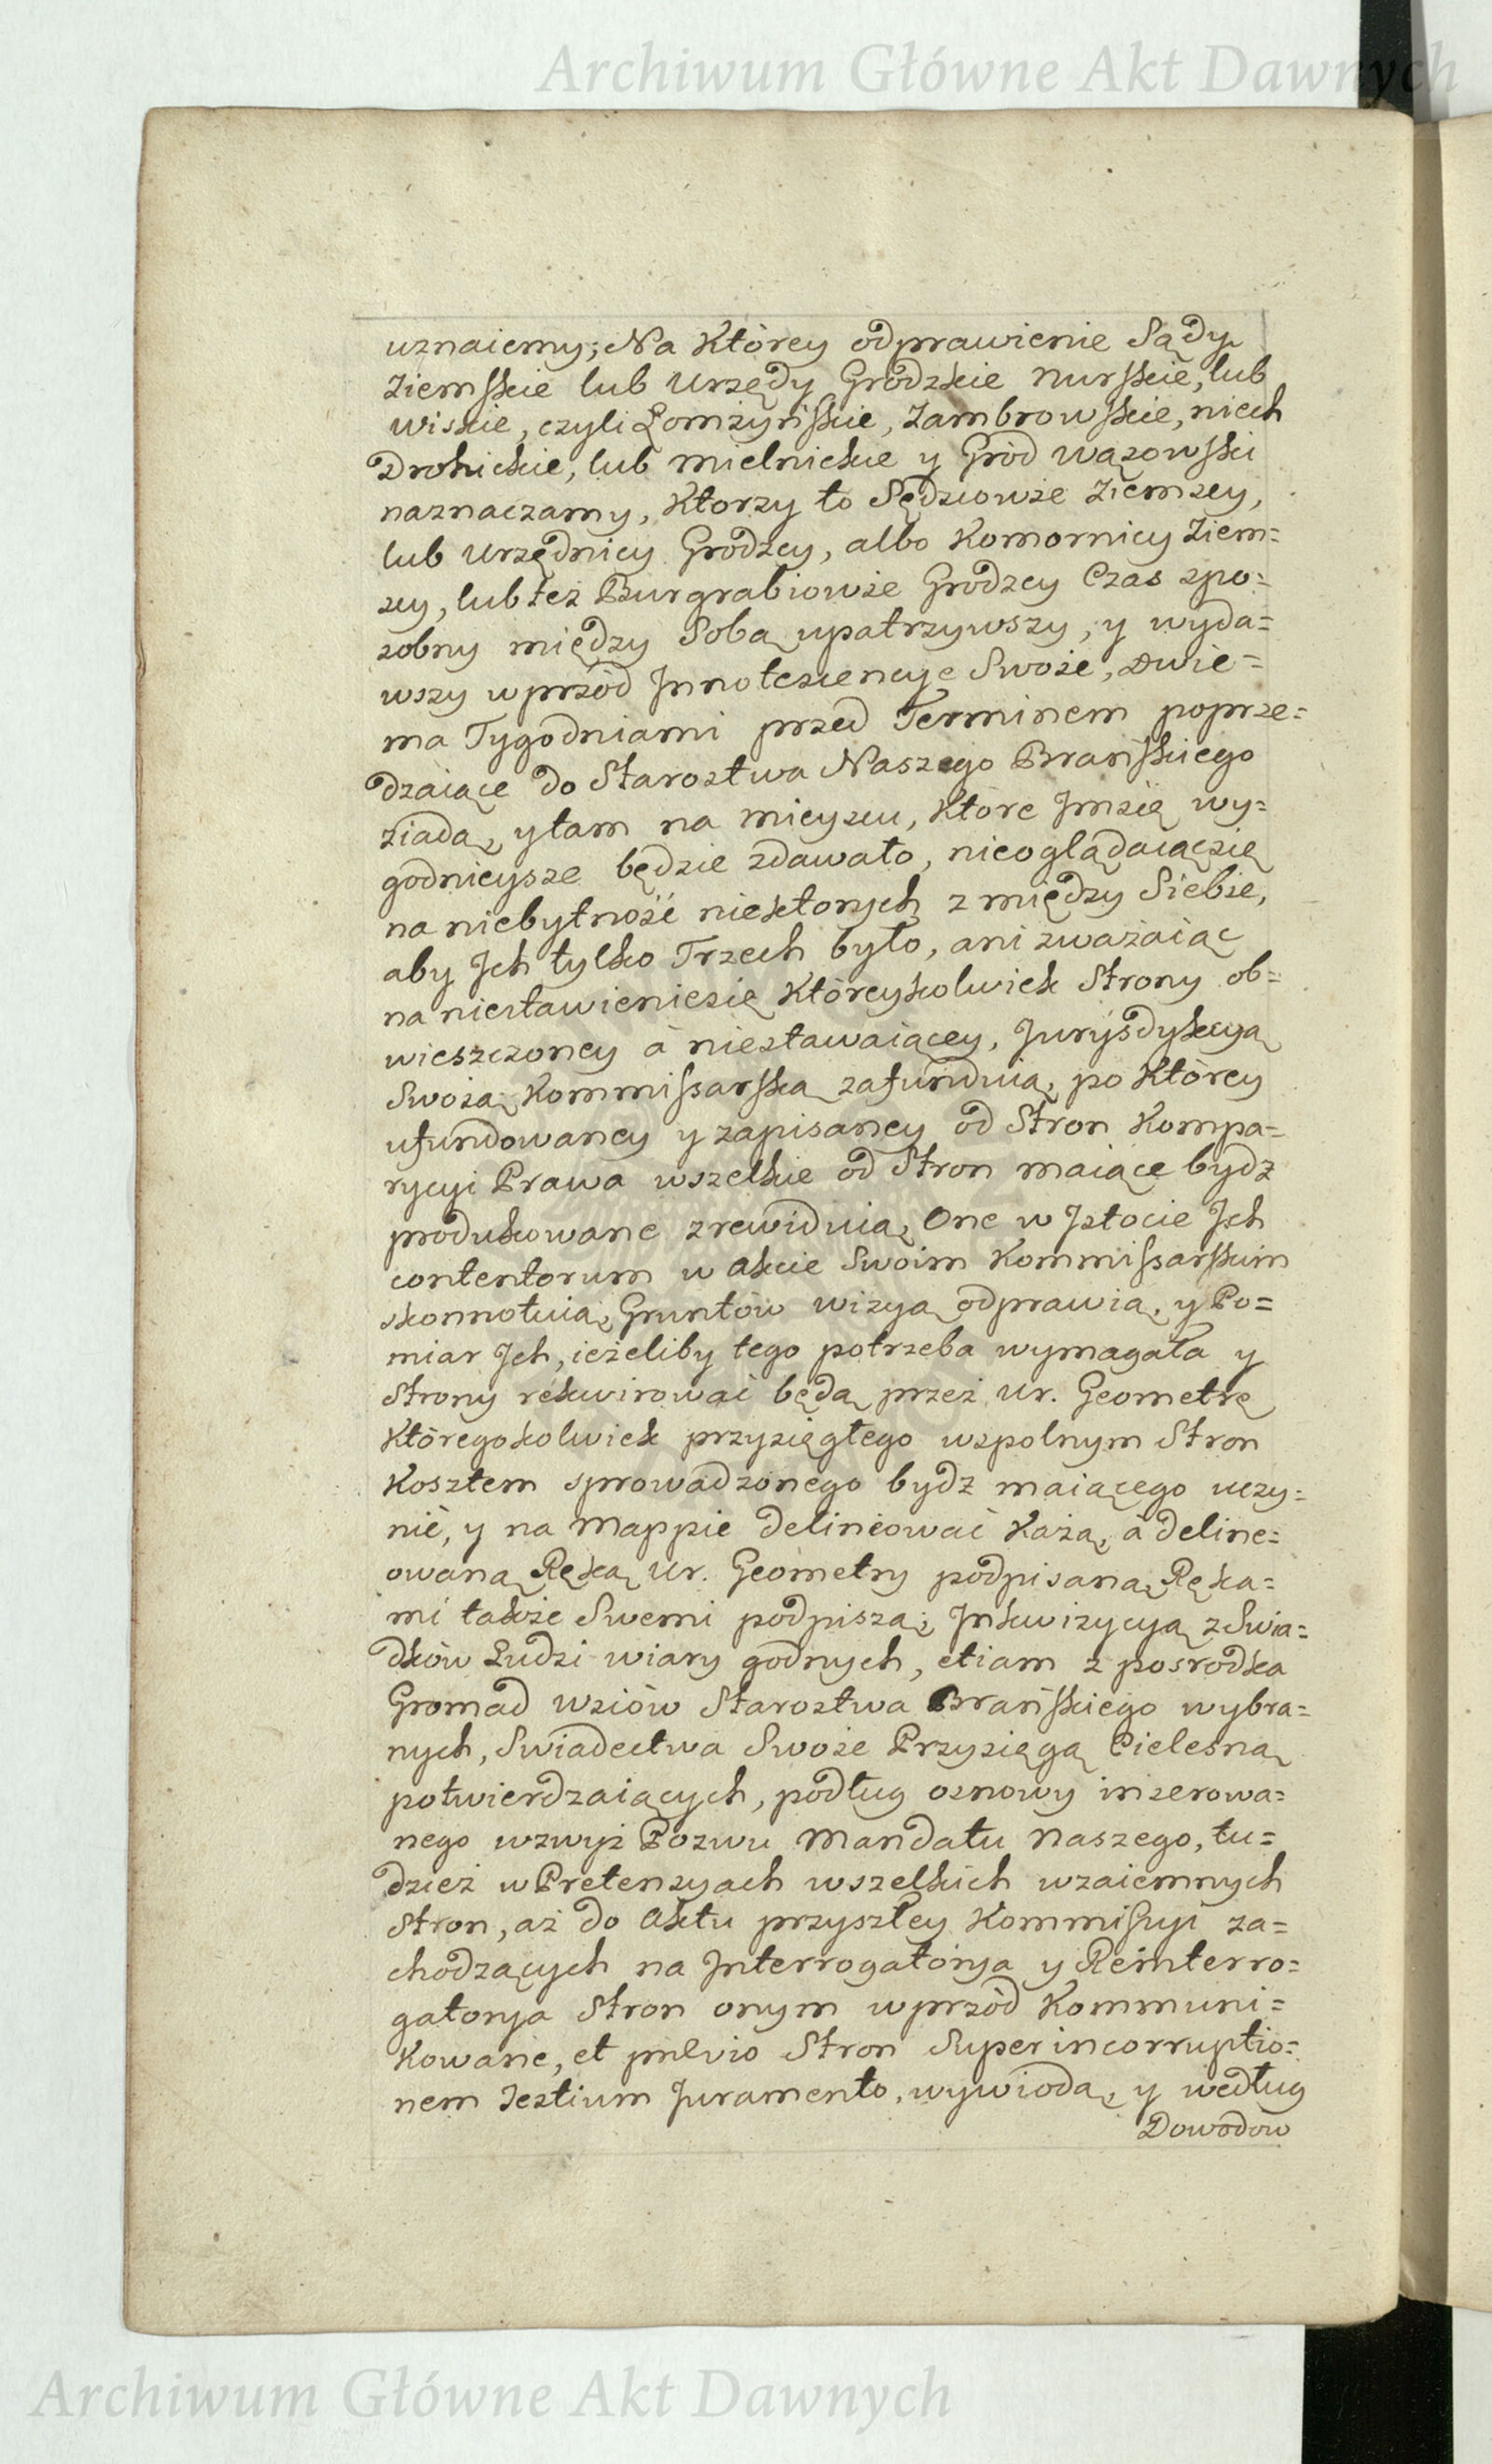 Archiwum Główne Akt Dawnych
uznaiemy; Na Którey odprawienie Sądy
Ziemskie lub Urzędy Grodzkie Nurskie, lub
Wiskie, czyli Łomżyńskie, Zambrowskie, niech
Drohickie, lub Mielnickie y Gród Wąsowski
naznaczamy, Ktorzy to Sędziowie Ziemscy,
lub Urzędnicy Grodzcy, albo Komornicy Ziem=
scy, lub też Burgrabiowie Grodzcy Czas spo=
sobny między Sobą upatrzywszy, y wyda=
wszy wprzód Innotescencye Swoie, Dwie=
ma Tygodniami przed Terminem poprze=
dzaiące do Starostwa Naszego Brańskiego
ziadą, y tam na mieyscu, Które Imsię wy=
godnieysze będzie zdawało, nieoglądaiącsię
na niebytność niektorych z między Siebie,
aby Ich tylko Trzech było, ani zważaiąc
na niestawieniesię Któreykolwiek Strony ob=
wieszczoney à niestawaiącey, Jurysdykcyą
Swoią Kommissarską zafunduią, po Którey
ufundowaney y zapisaney od Stron Kompa=
rycyi Prawa wszelkie od Stron maiące bydz
produkowane zrewiduią, One w Istocie Ich
contentorum w Akcie Swoim Kommissarskim
skonnotuią, Gruntów wizyą odprawią, y Po=
miar Ich, ieżeliby tego potrzeba wymagała y
Strony rekwirowai będą przez Ur. Geometrę
Któregokolwiek przysięgłego wspolnym Stron
Kosztem sprowadzonego bydz maiącego uczy=
nić, y na Mappie delineować Każą, à deline=
owaną Ręką Ur. Geometry podpisaną, Ręka=
mi także Swemi podpiszą; Inkwizycyą z Swia=
dków Ludzi wiary godnych, etiam z posrodka
Gromad Wsiów Starostwa Brańskiego wybra=
nych, Swiadectwa Swoie Przysięgą Cielesną
potwierdzaiących, podług osnowy inserowa=
nego wzwyż Pozwu Mandatu Naszego, tu=
dzież w Pretensyach wszelkich wzaiemnych
Stron, aż do Aktu przyszłey Kommissyi za=
chodzących na Interrogatorya y Reinterro=
gatorya Stron onym wprzód Kommuni=
Kowane, et prævio Stron Super incorruptio=
nem Testium Juramento, wywiodą, y według
Dowodow
Archiwum Główne Akt Dawnych